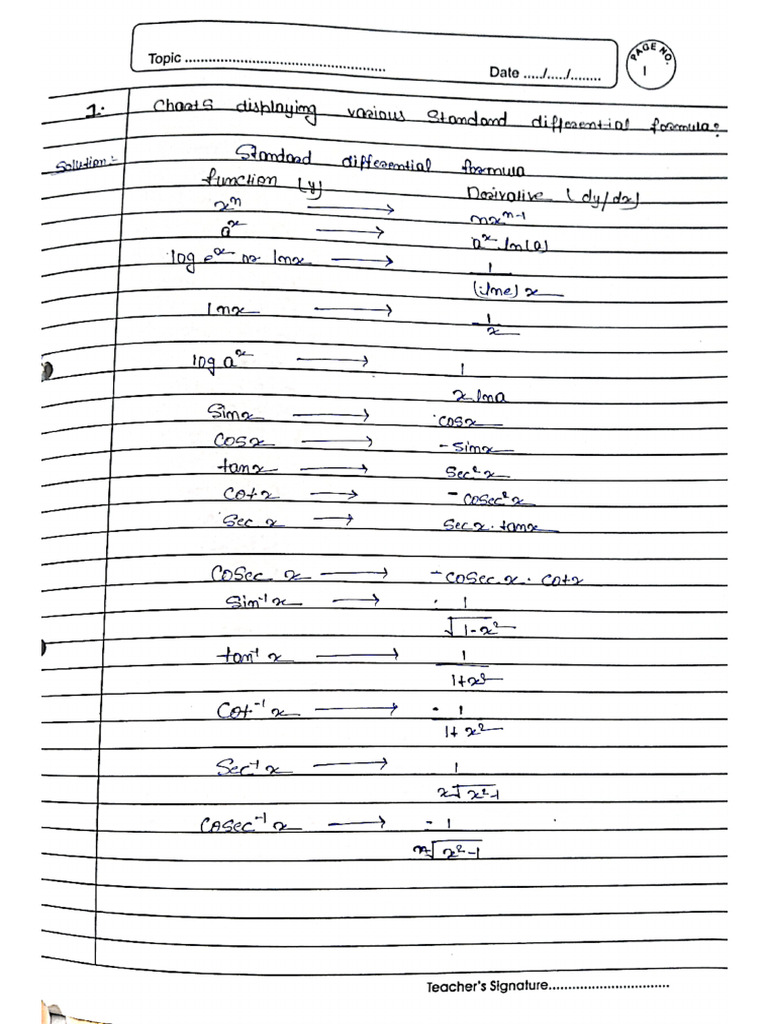 Topic ....................................................
Date ...../...../........
PAGE NO.
1
1. Charts displaying various Standard differential formula:
Solution:- Standard differential formula
function (y) Derivative (dy/dx)
xⁿ ⟶ nxⁿ⁻¹
aˣ ⟶ aˣ.ln(a)
log eˣ or lnx ⟶ 1
(lne) x
lnx ⟶ 1
x
log aˣ ⟶ 1
x.lna
Sinx ⟶ cosx
Cosx ⟶ -Sinx
tanx ⟶ Sec²x
Cotx ⟶ -cosec²x
Sec x ⟶ Secx.tanx
Cosec x ⟶ -cosec x. Cotx
Sin⁻¹x ⟶ 1
√1-x²
tan⁻¹ x ⟶ 1
1+x²
Cot⁻¹ x ⟶ - 1
1+x²
Sec⁻¹x ⟶ 1
x√x²-1
Cosec⁻¹ x ⟶ - 1
x√x²-1
Teacher's Signature...............................